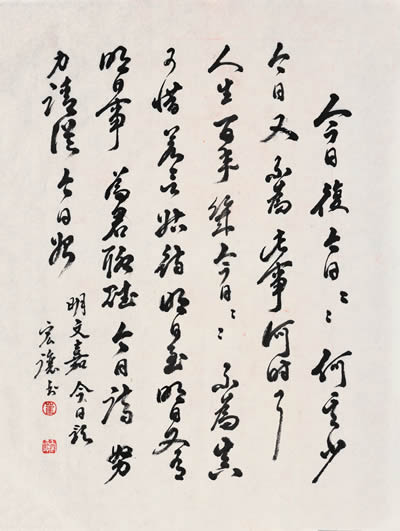 今日復今日〻〻何其少
今日又不為此事何時了
人生百年幾今日〻〻不為真
可惜若言姑待明日至明日又有
明日事為君聊賦今日詩努
力請從今日始
明文嘉今日歌
宏 书